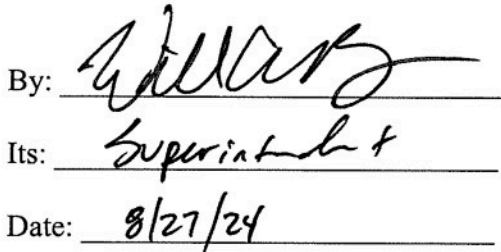 By:
Its: Superintendent
Date: 8/27/24